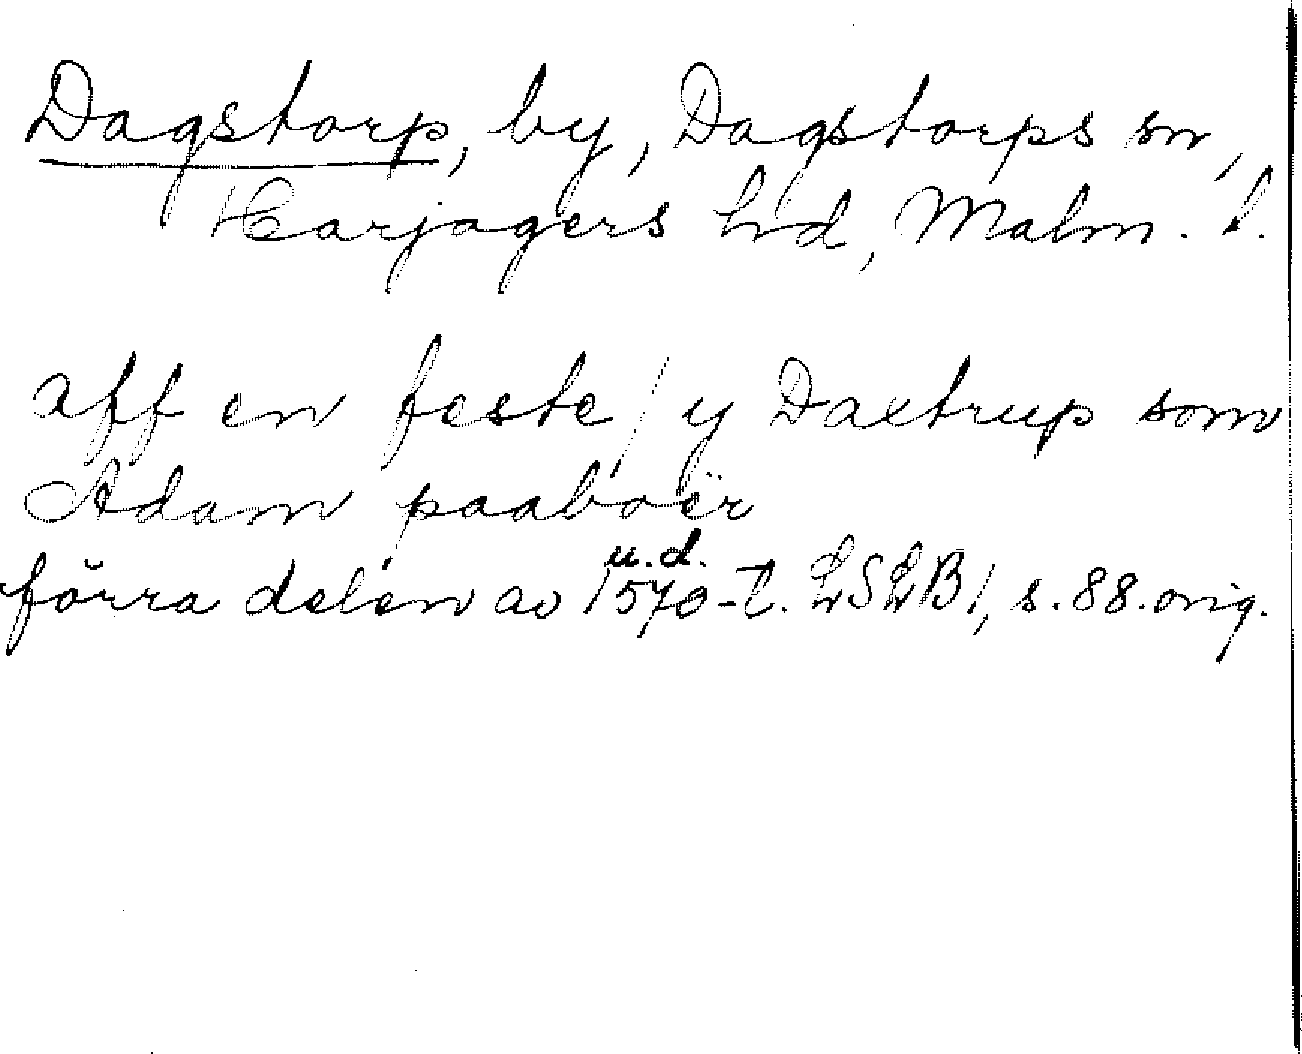 Dagstorp, by, Dagstorps sn,
Harjagers hd, Malm. l.
aff en feste / y Daetrup som
Adam paaboër
u.d.
förra delen av 1570-t. LSLB 1, s. 88. orig.